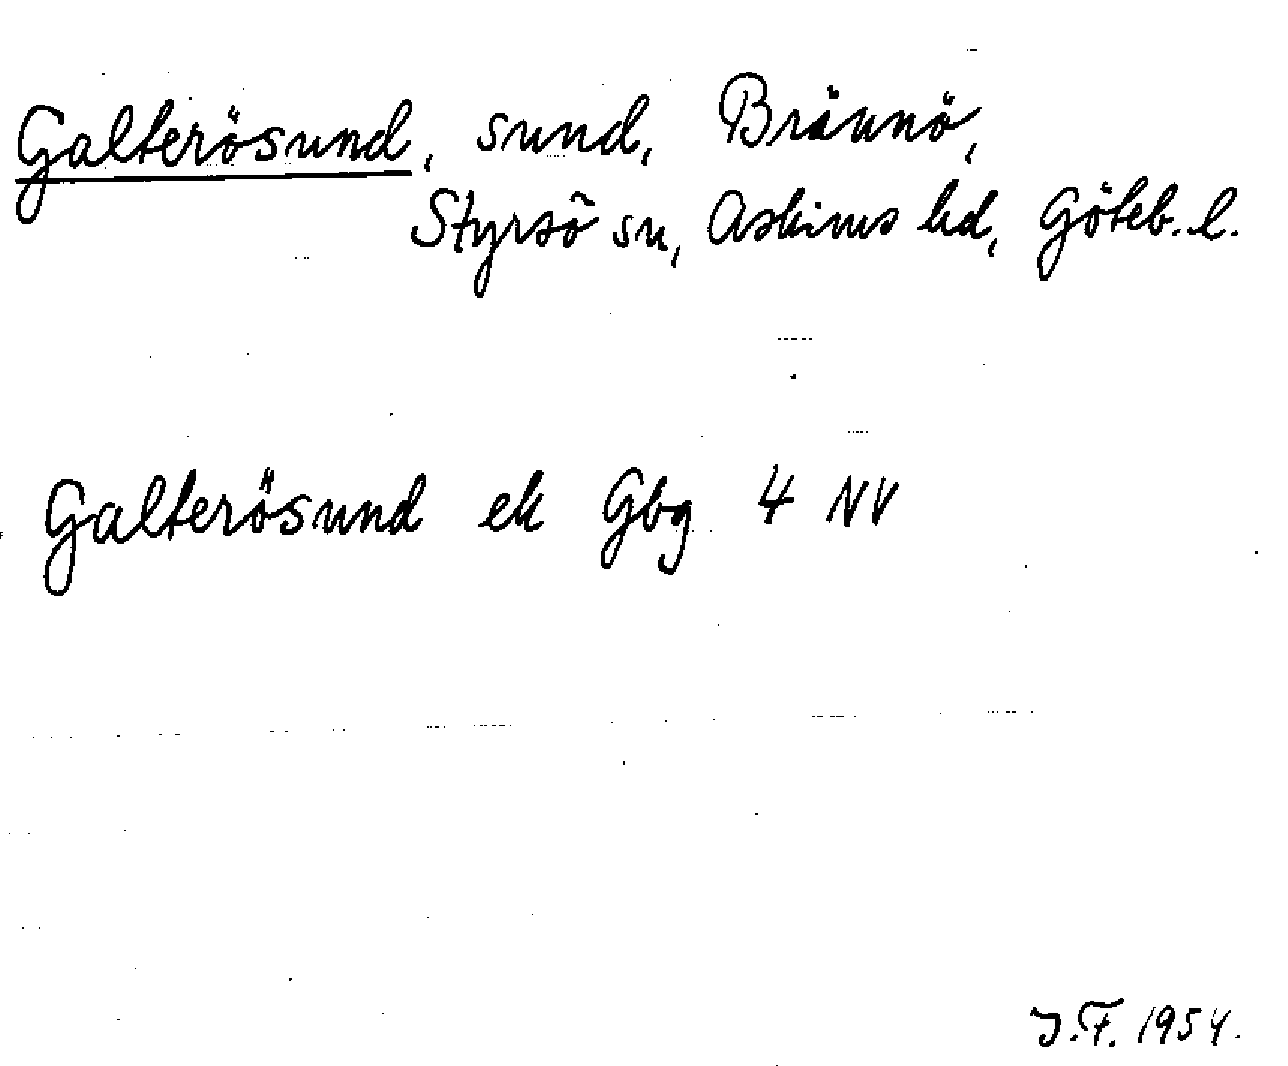 Galterösund, sund, Brännö,
Styrsö sn, Askims hd, Göteb. l.
Galterösund ek Gbg 4 NV
J.F. 1954.